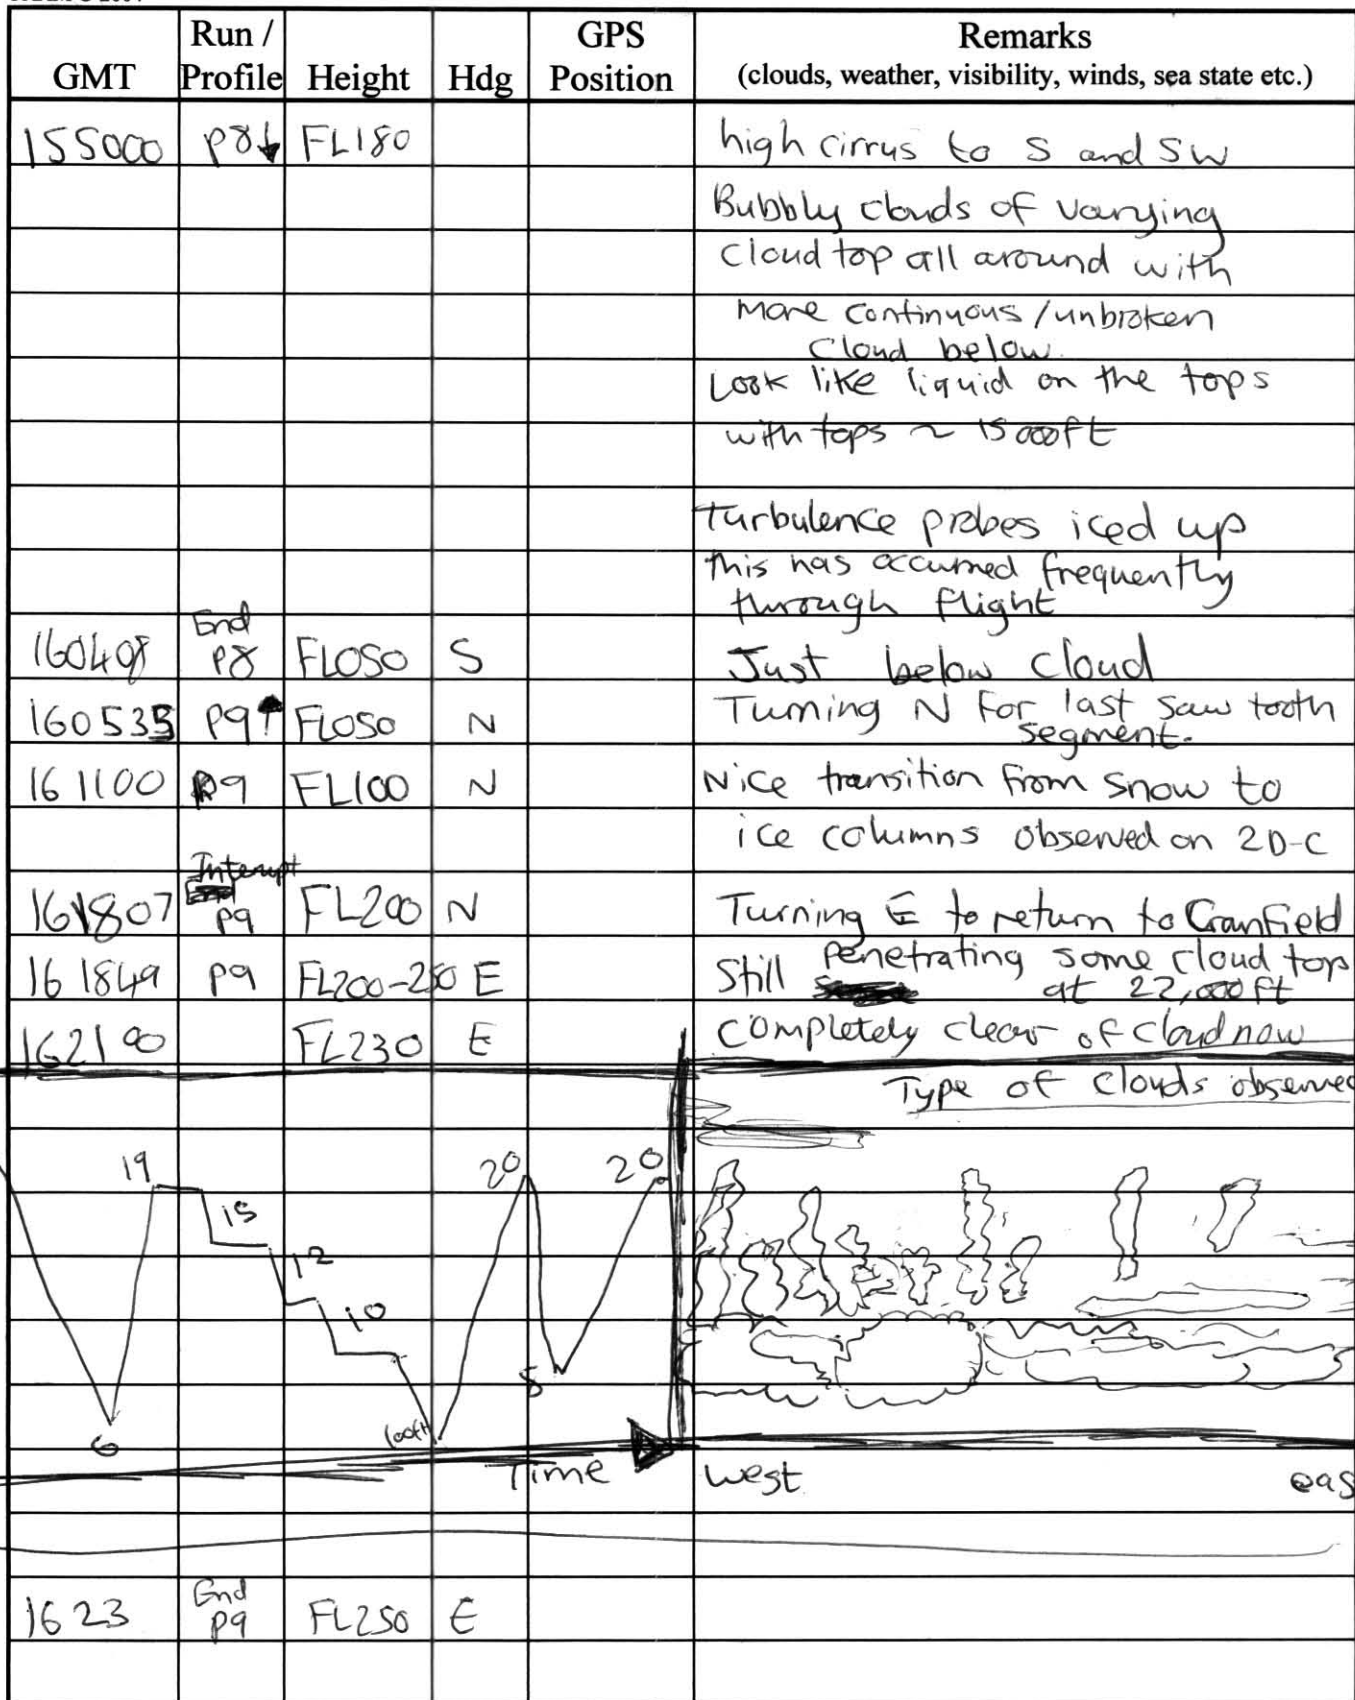 GMT Run / Profile Height Hdg GPS Position Remarks
(clouds, weather, visibility, winds, sea state etc.)
155000 P8↓ FL180 high cirrus to S and SW
Bubbly clouds of varying
cloud top all around with
more continuous/unbroken
cloud below.
Look like liquid on the tops
with tops ~ 15000ft
Turbulence probes iced up
this has occurred frequently
through flight
160408 End P8 FL050 S Just below cloud
160535 P9↑ FL050 N Turning N for last saw tooth
segment.
161100 P9 FL100 N Nice transition from snow to
ice columns observed on 2D-C
161807 Interupt P9 FL200 N Turning E to return to Cranfield
161849 P9 FL200-250 E Still penetrating some cloud tops
at 22,000ft
162100 FL230 E Completely clear of cloud now
Type of clouds observed
19 20 20
15
12
10
5
6 100ft
Time West eas
1623 End P9 FL250 E